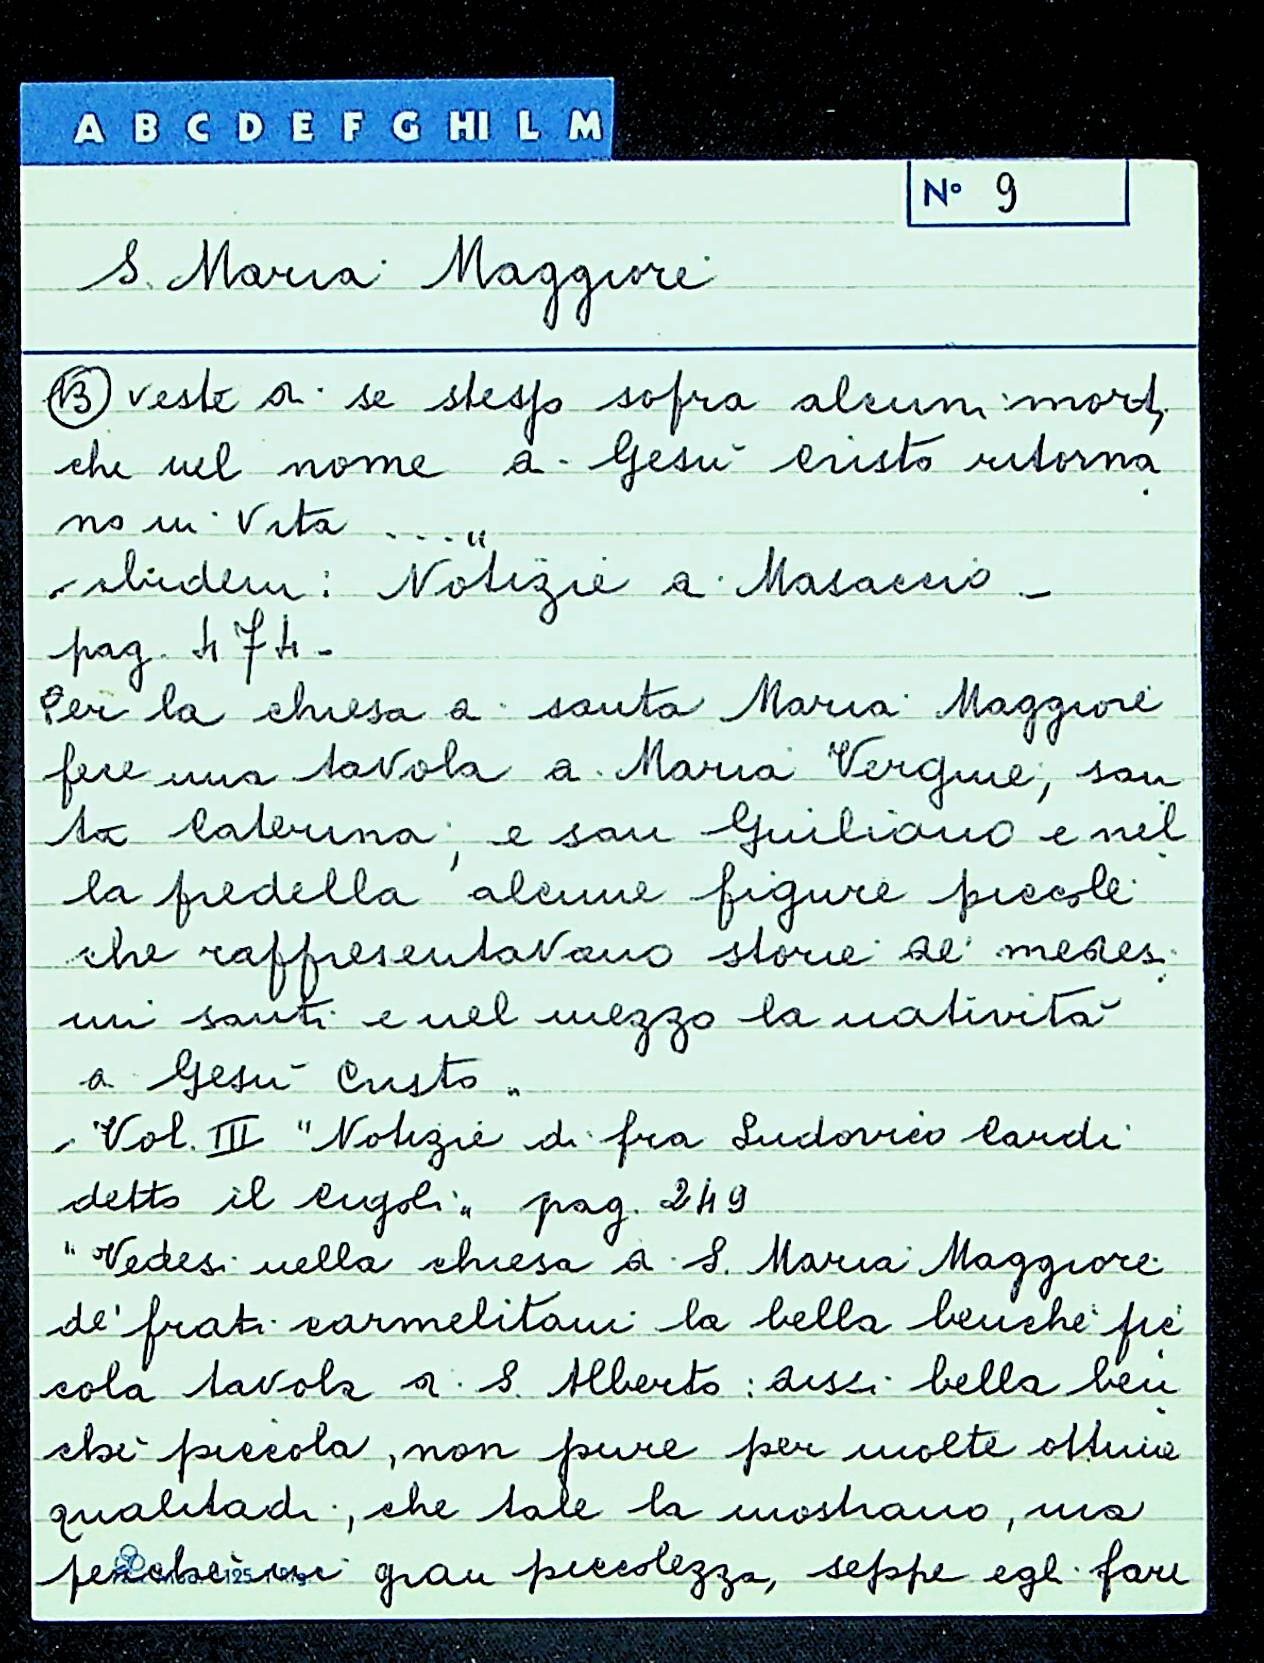 A B C D E F G HI L M
N° 9
S. Maria Maggiore
13 veste di se stesso sopra alcuni morti,
che nel nome di Gesù Cristo ritorna
no in vita ...."
- Ibidem: Notizie di Masaccio -
pag. 474 -
Per la chiesa di santa Maria Maggiore
fece una tavola di Maria Vergine, san
ta Caterina, e san Giuliano e nel
la predella alcune figure piccole
che rappresentavano storie de' medesi
mi santi e nel mezzo la natività
di Gesù Cristo "
- Vol. III "Notizie di fra Ludovico Cardi
detto il Cigoli" pag. 249
"Vedesi nella chiesa di S. Maria Maggiore
de' frati carmelitani la bella benché pic
cola tavola di S. Alberto: dissi bella ben
ché piccola, non pure per molte ottime
qualitadi, che tale la mostrano, ma
perché in gran piccolezza, seppe egli fare